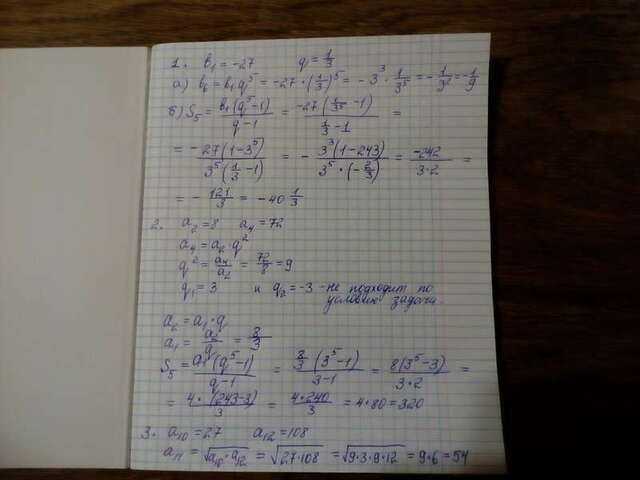 1. b₁ = -27 q = 1/3
а) b₆ = b₁q⁵ = -27 · (1/3)⁵ = -3³ · 1/3⁵ = -1/3² = -1/9
б) S₅ = b₁(q⁵-1)/q-1 = -27(1/3⁵ -1)/1/3 -1 =
= -27(1-3⁵)/3⁵(1/3 -1) = - 3³(1-243)/3⁵ · (-2/3) = -242/3·2 =
= - 121/3 = -40 1/3
2. a₂ = 8 a₄ = 72
a₄ = a₂ · q²
q² = a₄/a₂ = 72/8 = 9
q₁ = 3 и q₂ = -3 - не подходит по
условию задачи.
a₂ = a₁ · q
a₁ = a₂/q = 8/3
S₅ = a₁(q⁵-1)/q-1 = 8/3 (3⁵-1)/3-1 = 8(3⁵-3)/3·2 =
= 4 · (243-3)/3 = 4·240/3 = 4·80 = 320
3. a₁₀ = 27 a₁₂ = 108
a₁₁ = √a₁₀·a₁₂ = √27·108 = √9·3·9·12 = 9·6 = 54